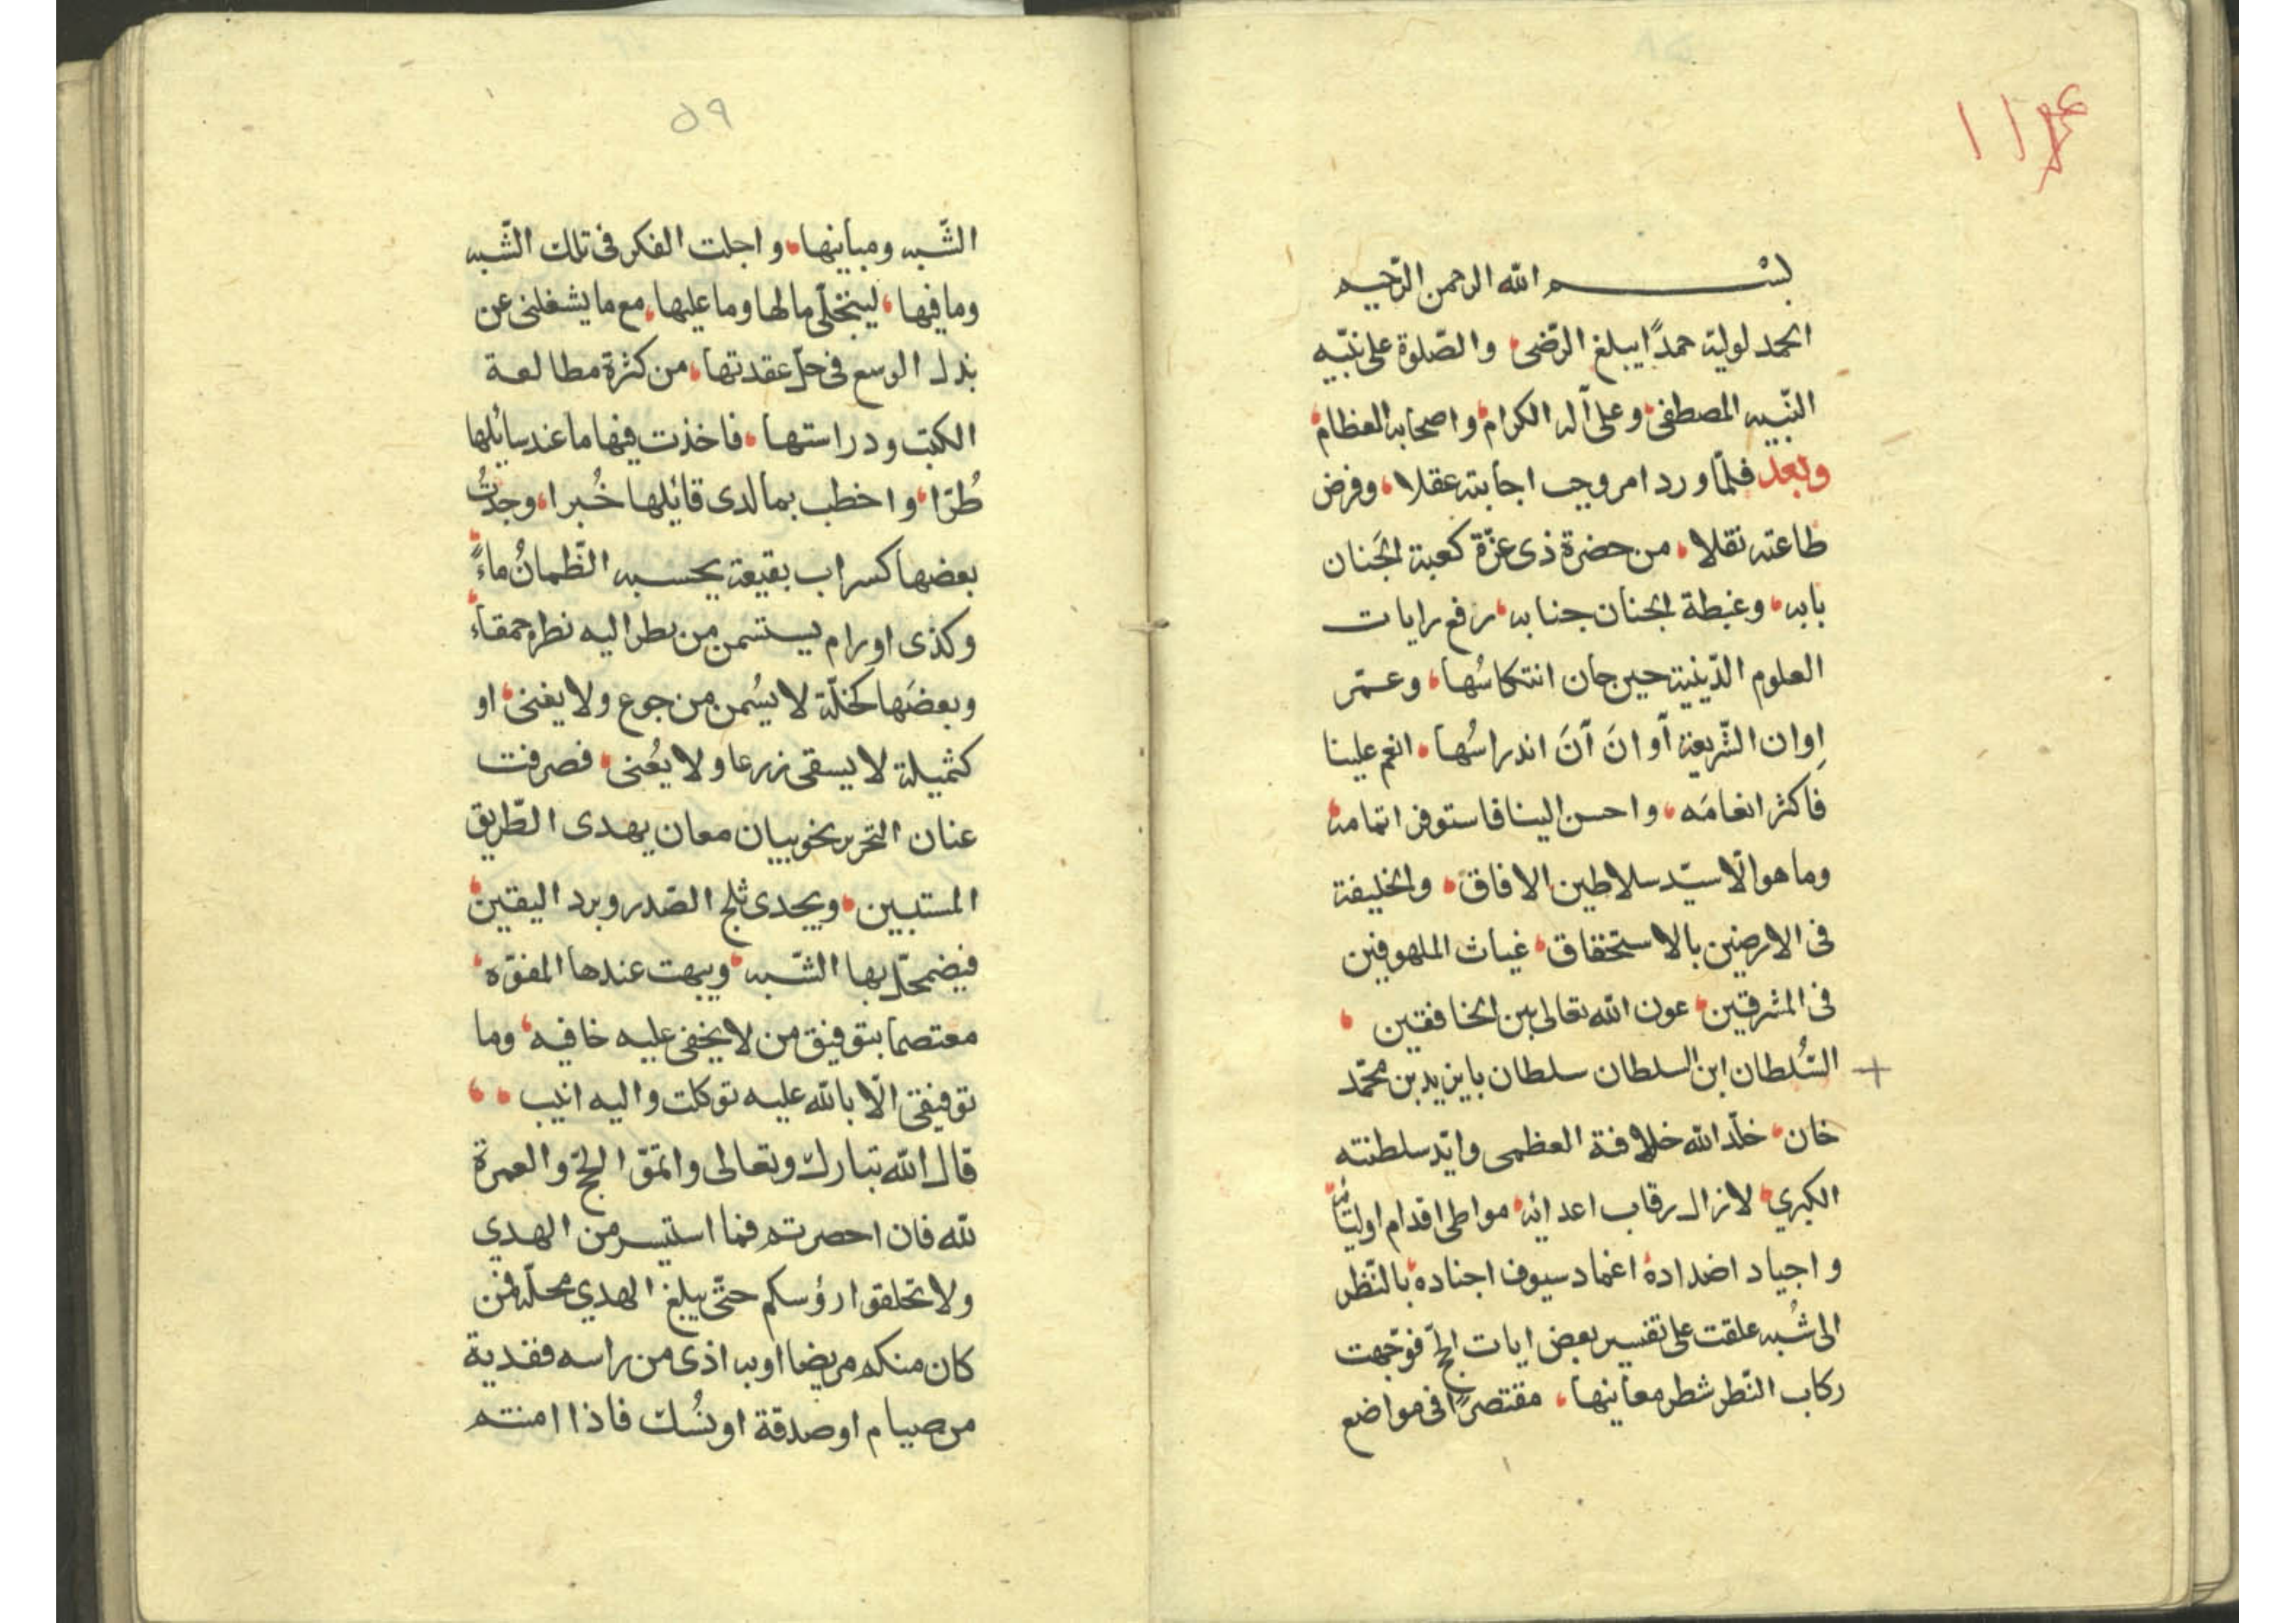 بسم الله الرحمن الرّحيم
الحمد لوليّه حمدًا يبلغ الرّضى، والصّلوة على نبيّه
النّبيه المصطفى، وعلى آله الكرام، واصحابه العظام،
وبعد فلمّا ورد امر وجب اجابته عقلا، وفرض
طاعته نقلا، من حضرة ذى عزّة كعبة الجَنان
بابه، وغبطة الجنان جنابه، رفع رايات
العلوم الدّينية حين حان انتكاسُها، وعمّر
اِوان الشّريعة أوانَ آنَ اندراسُها، انعم علينا
فاكثر انعامَه، واحسن الينا فاستوفى اتمامه،
وما هو الّا سيّد سلاطين الافاق، والخليفة
فى الارضين بالاستحقاق، غياث الملهوفين
فى المشرقين، عون الله تعالى بين الخافقين،
السُّلطان ابن السلطان سلطان بايزيد بن محمّد
خان، خلّد الله خلافة العظمى وايّد سلطنته
الكبري، لازال رقاب اعدائه، مواطى اقدام اوليائه،
واجياد اضداده، اغماد سيوف اجناده، بالنّظر
الى شُبه علقت على تفسير بعض ايات الحجّ فوجّهت
ركاب النّظر شطر معاينها، مقتصرًا فى مواضع
٥٩
الشّبه ومباينها، واجلت الفكر فى تلك الشّبه
وما فيها، لينخّلى ما لها وما عليها، مع ما يشغلنى عن
بذل الوسع فى حلّ عقدتها، من كثرة مطالعة
الكتب ودراستها، فاخذت فيها ما عند سايلها
طُرّا، واخطب بما لدى قائلها خُبرا، وجدتُ
بعضها كسراب بقيعة يحسبه الظّمانُ ماءً،
وكذى اورام يستسمن من نظر اليه نظر حمقاء،
وبعضَها كخلّة لا يُسمن من جوع ولا يغنى، او
كثميلة لا يسقى زرعا ولا يُعنى، فصرفت
عنان التحرير نحو بيان معان يهدى الطّريق
المستبين، ويجدى ثلج الصّدر وبرد اليقين،
فيضمحلّ بها الشّبه، ويبهت عندها المفوّه،
معتصما بتوفيق من لا يخفى عليه خافيه، وما
توفيقى الّا بالله عليه توكلت واليه انيب،،
قال الله تبارك وتعالى واتمّوّا الحجّ والعمرة
لله فان احصرتم فما استيسر من الهدي
ولا تحلقوا رؤسكم حتّى يبلغ الهدي محلّه فمن
كان منكم مريضا او به اذى من راسه ففدية
من صيام او صدقة او نُسك فاذا امنتم